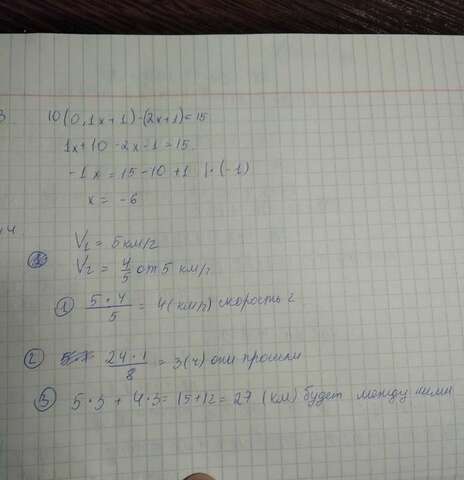 3
10(0,1x+1)-(2x+1)=15
1x+10-2x-1=15
-1x=15-10+1 |·(-1)
x=-6
4
V₁ = 5 км/г
V₂ = 4/5 от 5 км/г
① 5·4/5 = 4(км/г) скорость 2
② 24·1/8 = 3(ч) они прошли
③ 5·3+4·3=15+12=27 (км) будет между ними